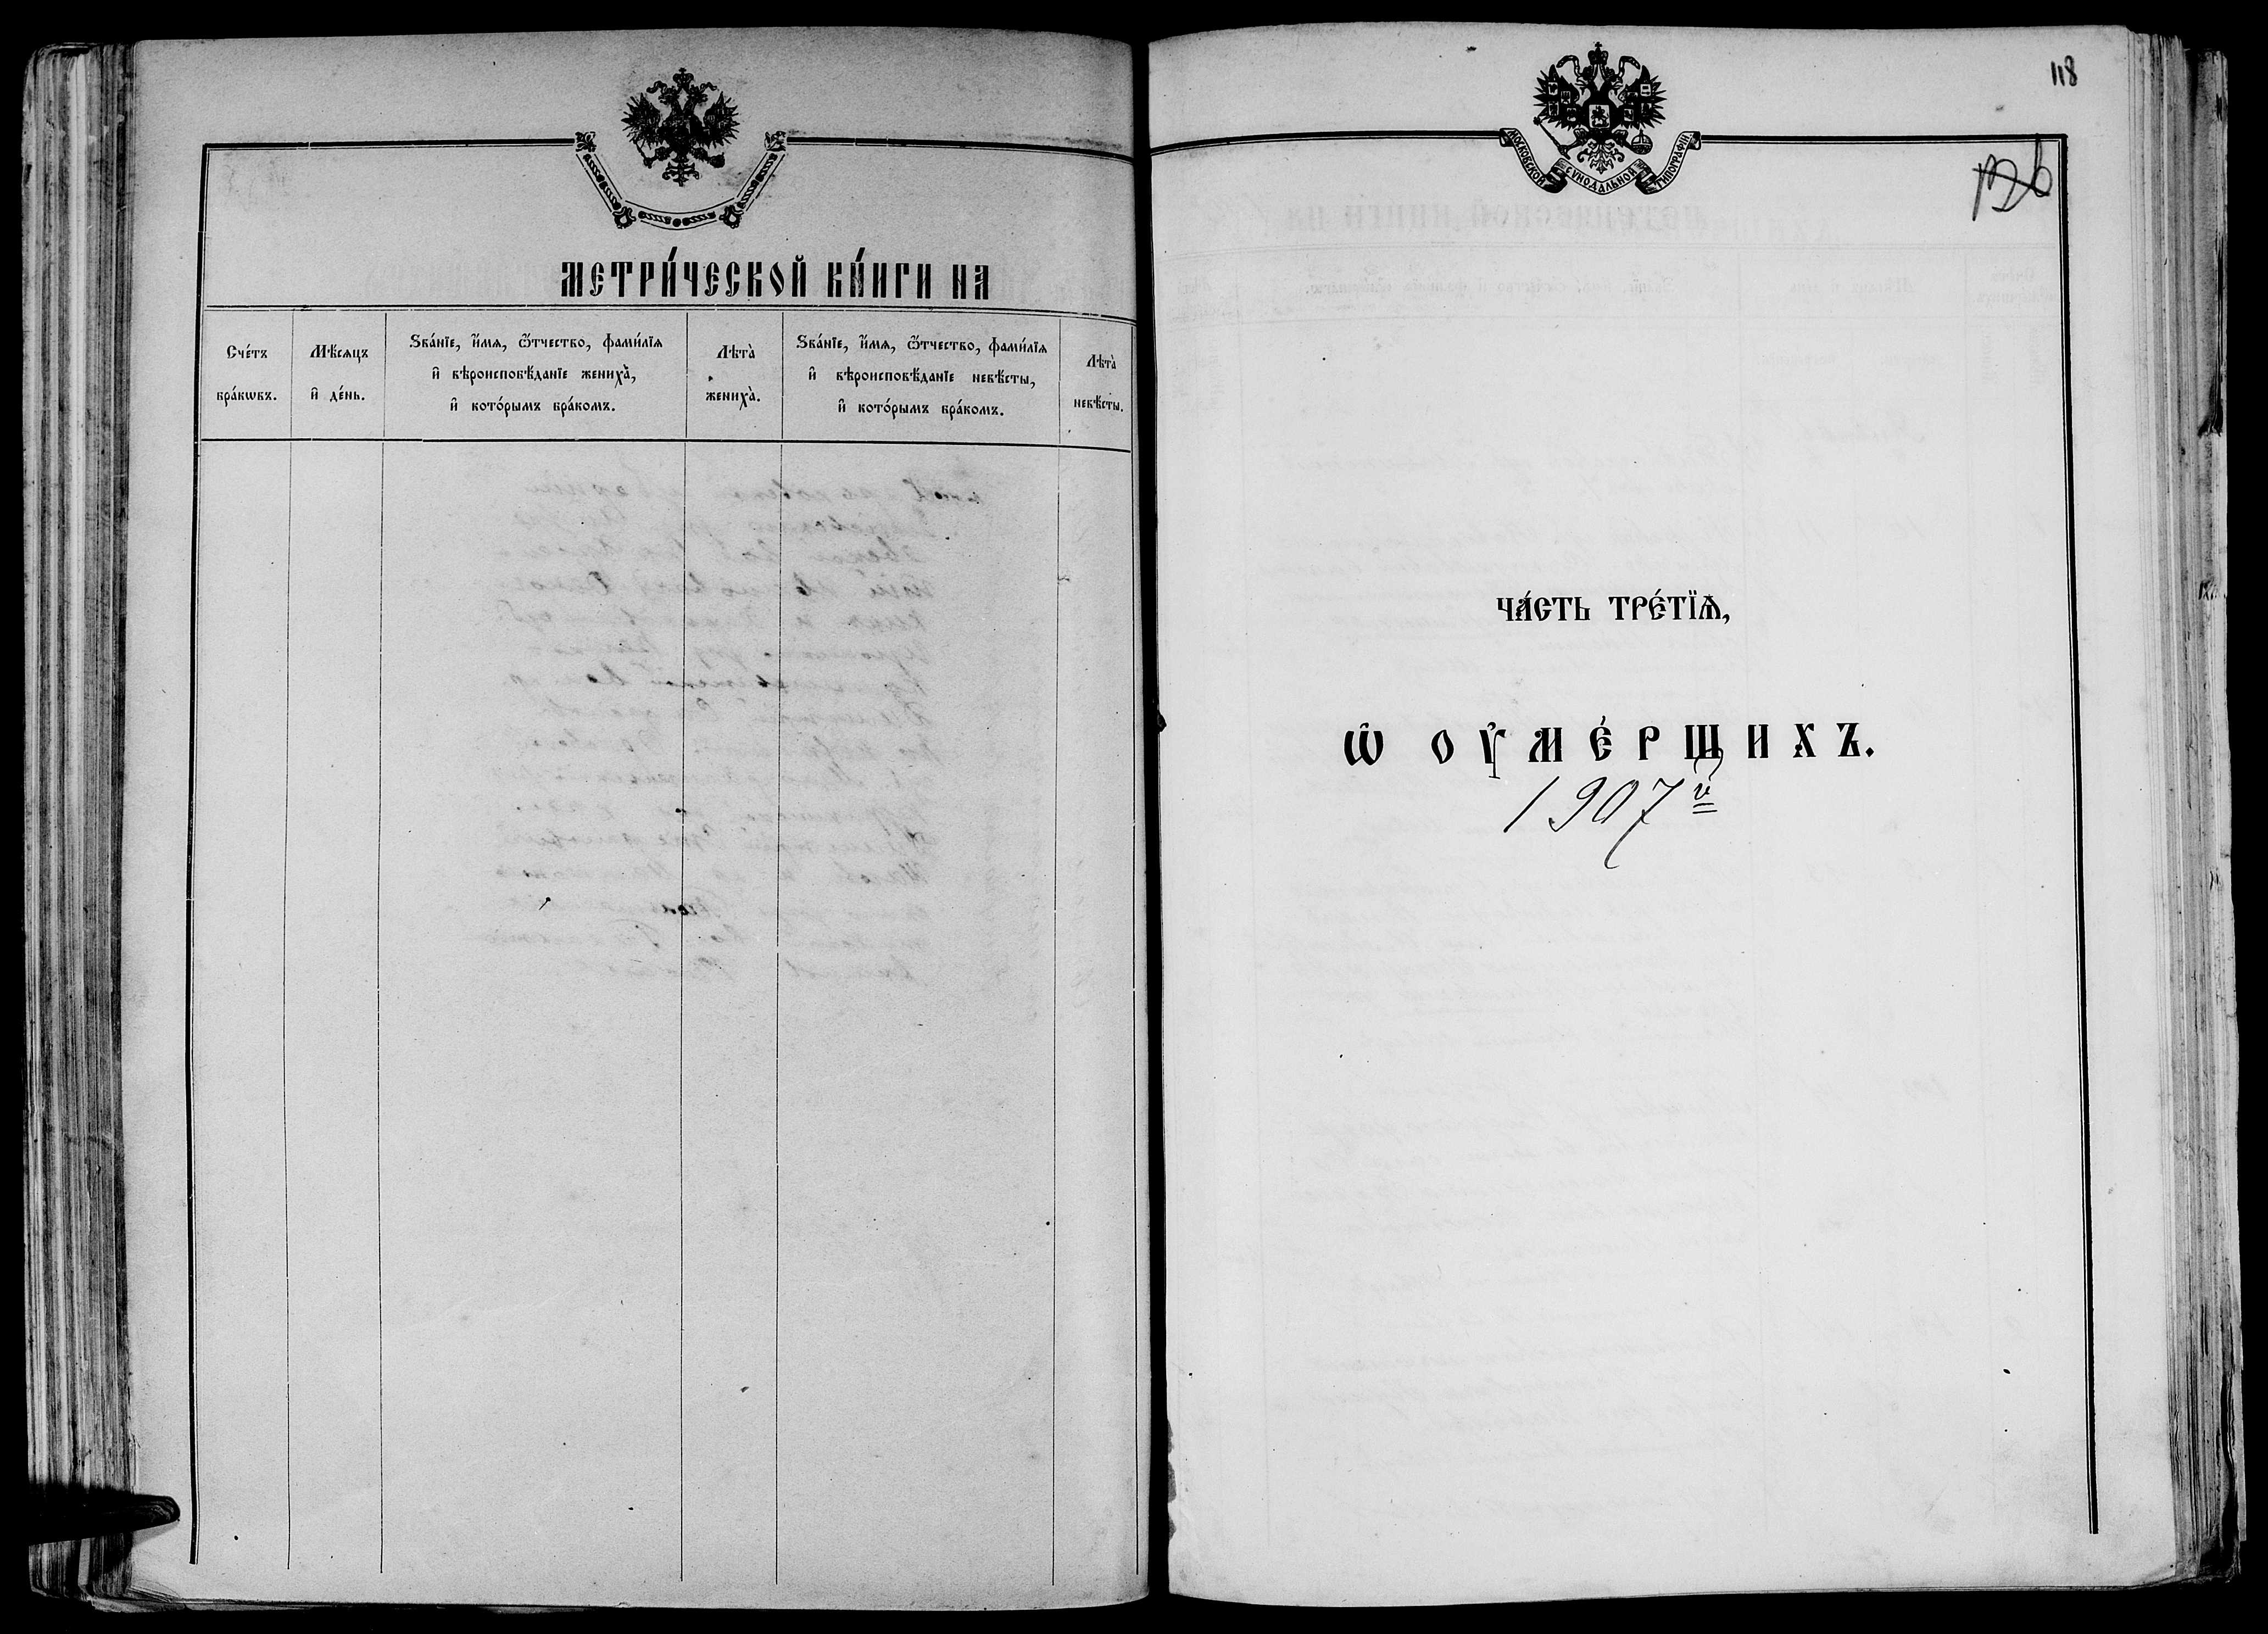 МЕТРИ́ЧЕСКОЙ КНИ́ГИ НА
Сче́тъ
бра́кѡвъ.
Мѣ́сѧцъ
и҆ де́нь.
Ѕва́нїе, и҆́мѧ, ѻ҆́тчество, фами́лїѧ
и҆ вѣроисповѣ́данїе жениха̀,
и҆ кото́рымъ бра́комъ.
Лѣта̀
жениха̀.
Ѕва́нїе, и҆́мѧ, ѻ҆́тчество, фами́лїѧ
и҆ вѣроисповѣ́данїе невѣ́сты,
и҆ кото́рымъ бра́комъ.
Лѣта̀
невѣ́сты.
118
МОСКОВСКОЙ СѴНОДАЛЬНОЙ ТИПОГРАФІИ
ЧА́СТЬ ТРЕ́ТЇѦ,
Ѡ҆ ОУ҆МЕ́РШИХЪ.
1907й